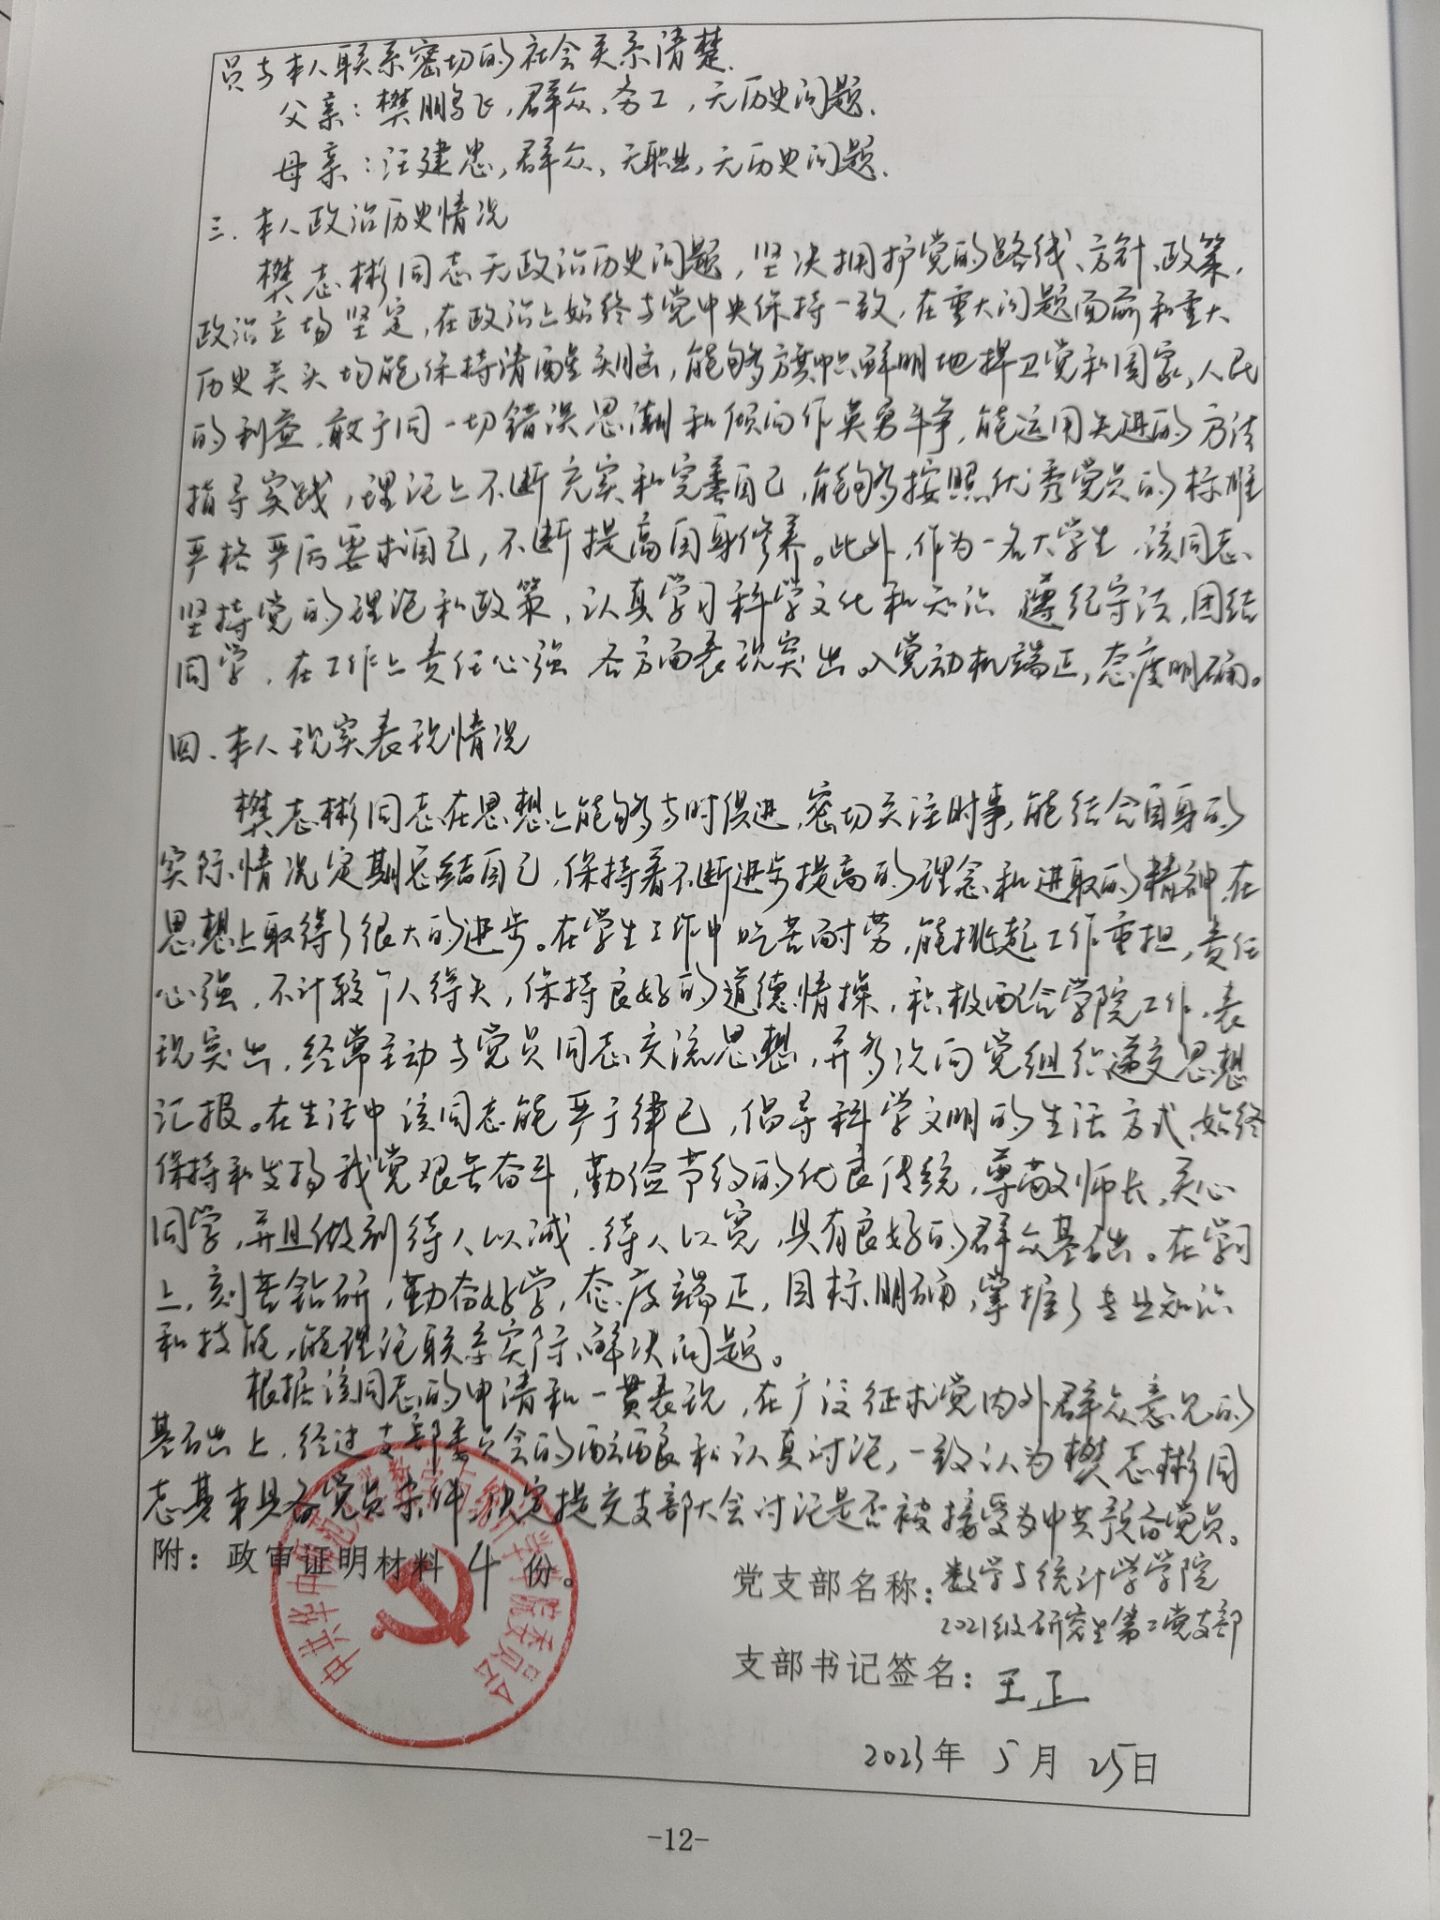 员与本人联系密切的社会关系清楚.
父亲:樊鹏飞,群众,务工,无历史问题.
母亲:汪建忠,群众,无职业,无历史问题.
三.本人政治历史情况
樊志彬同志无政治历史问题,坚决拥护党的路线、方针、政策,
政治立场坚定,在政治上始终与党中央保持一致,在重大问题面前和重大
历史关头均能保持清醒头脑,能够旗帜鲜明地捍卫党和国家、人民
的利益,敢于同一切错误思潮和倾向作英勇斗争,能运用先进的方法
指导实践,理论上不断充实和完善自己,能够按照优秀党员的标准
严格严厉要求自己,不断提高自身修养。此外,作为一名大学生,该同志
坚持党的理论和政策,认真学习科学文化和知识 遵纪守法,团结
同学,在工作上责任心强 各方面表现突出。入党动机端正,态度明确。
四.本人现实表现情况
樊志彬同志在思想上能够与时俱进,密切关注时事,能结合自身的
实际情况定期总结自己,保持着不断进步提高的理念和进取的精神,在
思想上取得了很大的进步。在学生工作中吃苦耐劳,能挑起工作重担,责任
心强,不计较个人得失,保持良好的道德情操,积极配合学院工作,表
现突出,经常主动与党员同志交流思想,并多次向党组织递交思想
汇报。在生活中该同志能严于律己,倡导科学文明的生活方式,始终
保持和发扬我党艰苦奋斗,勤俭节约的优良传统,尊敬师长,关心
同学,并且做到待人以诚,待人以宽,具有良好的群众基础。在学习
上,刻苦钻研,勤奋好学,态度端正,目标明确,掌握了专业知识
和技能,能理论联系实际,解决问题。
根据该同志的申请和一贯表现,在广泛征求党内外群众意见的
基础上,经过支部委员会的酝酿和认真讨论,一致认为樊志彬同
志基本具备党员条件 决定提交支部大会讨论是否被接受为中共预备党员。
附:政审证明材料 4 份。
党支部名称:数学与统计学学院
2021级研究生第二党支部
支部书记签名:王正
2023年 5月 25日
-12-